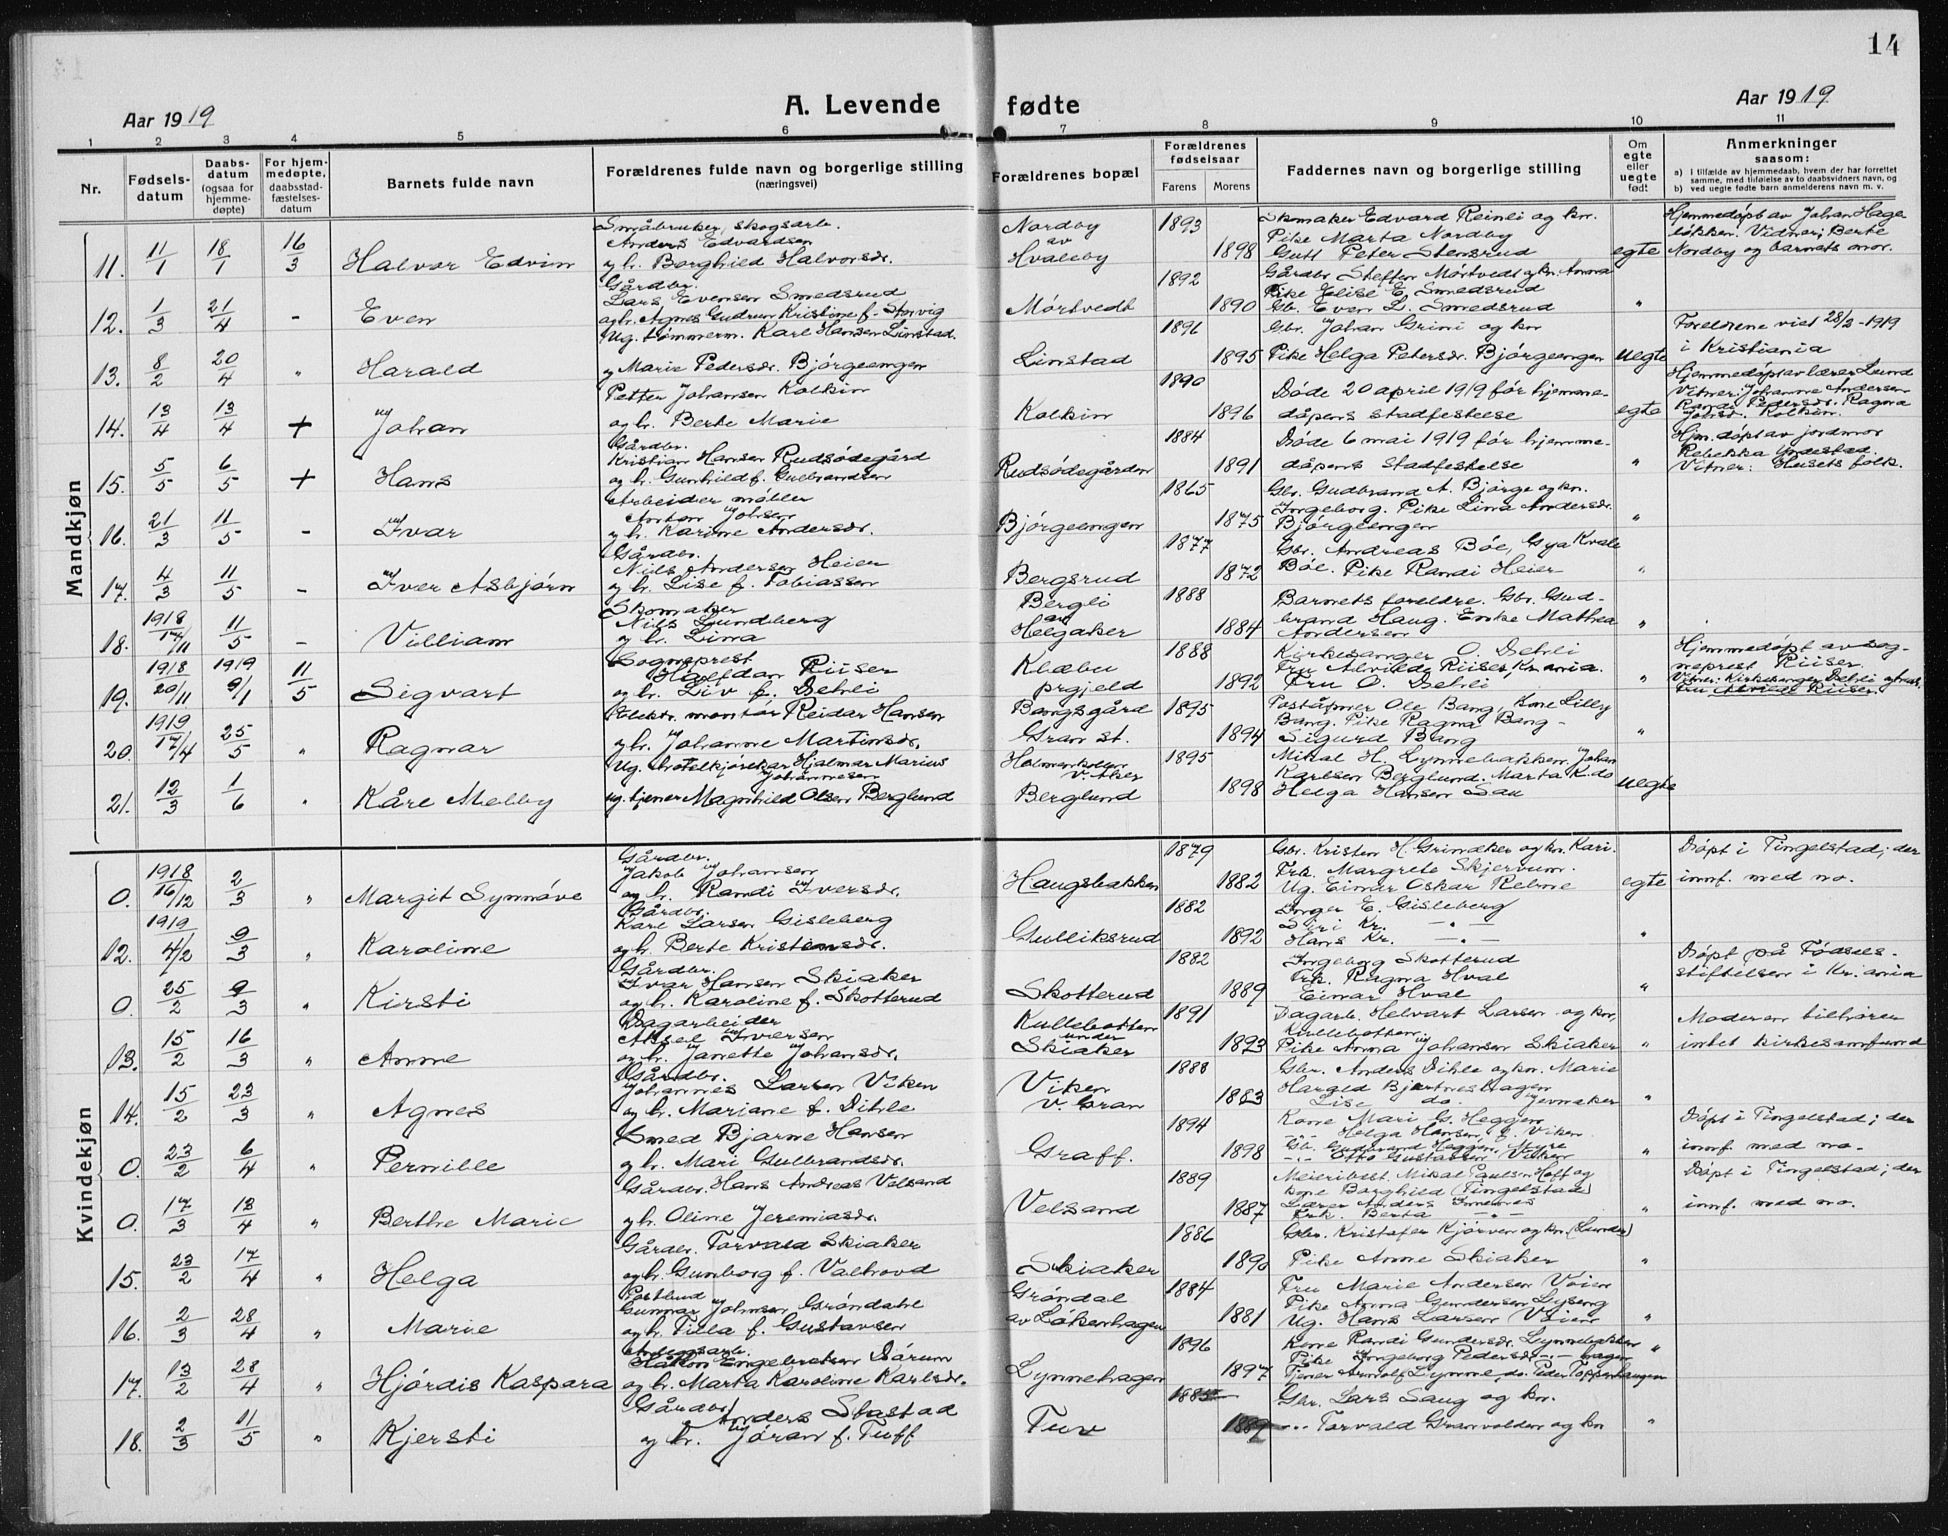 14
Aar 1919
A. Levende fødte
Aar 1919
1 2 3 4 5 6 7 8 9 10 11
Nr.
Fødsels-
datum
Daabs-
datum
(ogsaa for
hjemme-
døpte)
For hjem-
medøpte,
daabsstad-
fæstelses-
datum
Barnets fulde navn
Forældrenes fulde navn og borgerlige stilling
(næringsvei)
Forældrenes bopæl
Forældrenes
fødselsaar
Farens Morens
Faddernes navn og borgerlige stilling
Om
egte
eller
uegte
født
Anmerkninger
saasom:
a) i tilfælde av hjemmedaab, hvem der har forrettet
samme, med tilføielse av to daabsvidners navn, og
b) ved uegte fødte barn anmelderens navn m. v.
Mandkjøn
11. 11/1 18/1 16/3 Halvor Edvin
Småbruker, skogsarb.
Anders Edvardsen
og h. Borghild Halvorsdr.
Nordby
av
Hvaleby
1893 1898
Skomaker Edvard Reinli og kn.
Pike Marta Nordby
Gutt Peter Stensrud
egte
Hjemmedøpt av Johan Haga
løkken. Vidner: Berte
Nordby og barnets mor.
12. 1/3 21/4 - Even
Gårdbr.
Lars Evensen Smedsrud
og h. Agnes Gudrun Kristine f. Storvig
Mørtvedt
1892 1890
Gårdbr Steffen Mørtvedt og kn. Anna
Pike Elise E. Smedsrud
Gb. Even L. Smedsrud
"
13. 8/2 20/4 " Harald
Ug. tømmerm. Karl Hansen Linstad.
og Marie Pedersdr. Bjørgeengen
Linstad
1896 1895
Gbr. Johan Grini og kn
Pike Helga Petersdr. Bjørgeengen
uegte
Foreldrene viet 28/2-1919
i Kristiania
14. 13/4 13/4 + Johan
Petter Johansen Kolkin
og h. Berte Marie
Kolkin
1890 1896
Døde 20 april 1919 før hjemme-
dåpens stadfestelse
egte
Hjemmedøpt av lærer Lund
Vitner: Johanne Andersen
15. 5/5 6/5 + Hans
Gårdbr.
Kristian Hansen Rudsødegård
og h. Gunhild f. Gulbrandsen
Rudsødegården
1884 1891
Døde 6 mai 1919 før hjemme-
dåpens stadfestelse
"
Hjm. døpt av jordmor
Rebekka
Vitner: Husets folk.
16. 21/3 11/5 - Ivar
Arbeider møbler
Anton Johsen
og h. Karine Andersdr.
Bjørgeengen
1865 1875
Gbr. Gudbrand A. Bjørge og kn.
Ingeborg. Pike Lina Andersdr.
Bjørgeengen
"
17. 4/3 11/5 - Iver Asbjørn
Gårdbr.
Nils Andersen Heier
og h. Lise f. Tobiassen
Bergsrud
1877 1872
Gbr. Andreas Bøe, Gya Kvale
Bøe. Pike Randi Heier
"
18. 1918 17/11 11/5 - Villiam
Skomaker
Nils Lundberg
og h. Lina
Bergli
av
Helgaker
1888 1884
Barnets foreldre. Gbr. Gud-
brand Haug. Enke Mathea
Andersen
"
19. 1918 20/11 1919 9/1 11/5 Sigvart
Sogneprest
Halfdan Riiser
og h. Liv f. Dehli
Klæbu
prgjeld
1888 1892
Kirkesanger O. Dehli
Fru Alvilde Riiser, Kr.ania.
Fru O. Dehli
"
Hjemmedøpt av sog-
neprest Riiser.
Vitner: Kirkesanger Dehli og frue,
Fru Alvilde Riiser.
20. 1919 17/4 25/5 " Ragnar
Elektr. montør Reidar Hansen
og h. Johanne Martinsdr.
Bangsgård
Gran st.
1895 1894
Poståpner Ole Bang, Kone Lilly
Bang. Pike Ragna Bang-
Sigurd Bang
"
21. 12/3 1/6 " Kåre Melby
Ug. hotelkjøreker Hjalmar Marius
Johannesen
ug. tjener Magnhild Olsen Berglund
Holmenkollen
v. Aker
Berglund
1895 1898
Mikal H. Lynnebakken, Johan
Karlsen Berglund. Marta K. do
Helga Hansen Sau
uegte
Kvindekjøn
0. 1918 16/12 2/3 " Margit Synnøve
Gårdbr.
Jakob Johansen
og h. Randi Iversdr.
Haugsbakken
1879 1882
Gbr. Kristen H. Grinaker og kn. Kari.
Frk. Margrete Skjervum.
Ug. Einar Oskar Rehne
egte
Døpt i Tingelstad; der
innf. med no.
12. 1919 4/2 9/3 " Karoline
Gårdbr.
Kare Larsen Gisleberg
og h. Berte Kristiansdr.
Gulliksrud
1882 1892
Inger E. Gisleberg
Siri Kr. - " -
Hans Kr. - " -
"
0. 25/2 9/3 " Kirsti
Gårdbr.
Ivar Hansen Skiaker
og h. Karoline f. Skotterud
Skotterud
1882 1889
Ingeborg Skotterud
Frk. Ragna Hval
Einar Hval
"
Døpt på Fødsels-
stiftelsen i Kr.ania
13. 15/2 16/3 " Anne
Dagarbeider
Aksel Iversen
og h. Janette Johansdr.
Kullebotten
under
Skiaker
1891 1893
Dagarb. Helvart Larsen og kn,
Kullebotten.
Pike Anna Johansen Skiaker
"
Moderen tilhører
intet kirkesamfund
14. 15/2 23/3 " Agnes
Gårdbr.
Johannes Larsen Viken
og h. Mariane f. Dihle
Viken
v. Gran
1888 1883
Gbr. Anders Dihle og kn. Marie
Harald Bjertneshagen
Lise do. Jevnaker
"
0. 23/2 6/4 " Pernille
Smed Bjarne Hansen
og h. Mari Gulbrandsdr.
Graff.
1894 1898
Kone Mari G. Heggen
-"- Helga Hansen, f. Viken
"
Døpt i Tingelstad; der
innf. med no.
0. 17/3 13/4 " Berthe Marie
Gårdbr. Hans Andreas Velsand
og h. Oline Jeremiasdr.
Velsand
1889 1887
Meieribest. Mikal Paulsen Hoff og
kone Borghild (Tingelstad)
Frk. Berta - " -
"
Døpt i Tingelstad; der
innf. med no.
15. 23/2 17/4 " Helga
Gårdbr. Torvald Skiaker
og h. Gunborg f. Valhovd
Skiaker
1886 1890
Gbr. Kristofer Kjørven og kn. (Lunder)
Pike Anne Skiaker
"
16. 2/3 28/4 " Marie
Postbud
Gunnar Johnsen Grøndahl
og h. Tilla f. Gustavsen
Grøndal
av Løkenhagen
1884 1881
Fru Marie Andersen Vøien
Pike Anna Gundersen Lyseng
Ug. Hans Larsen Vøien
"
17. 13/2 28/4 " Hjørdis Kaspara
Anleggsarb.
Håkon Engebretsen Dårum
og h. Marta Karoline Karlsdr.
Lynnehagen
1896 1897
Kone Randi Gundersdr. Lynnebakken
Pike Ingeborg Pedersdr. -"- hagen
Tjener Arnolf Lynne, do. Peder Toppenhaugen
"
18. 2/3 11/5 " Kjersti
Gårdbr.
Anders Stastad
og h. Jøran f. Tuff
Tuv
1885 1889
Gbr. Lars Saug og kn.
-"- Torvald Granvolden og kn
"